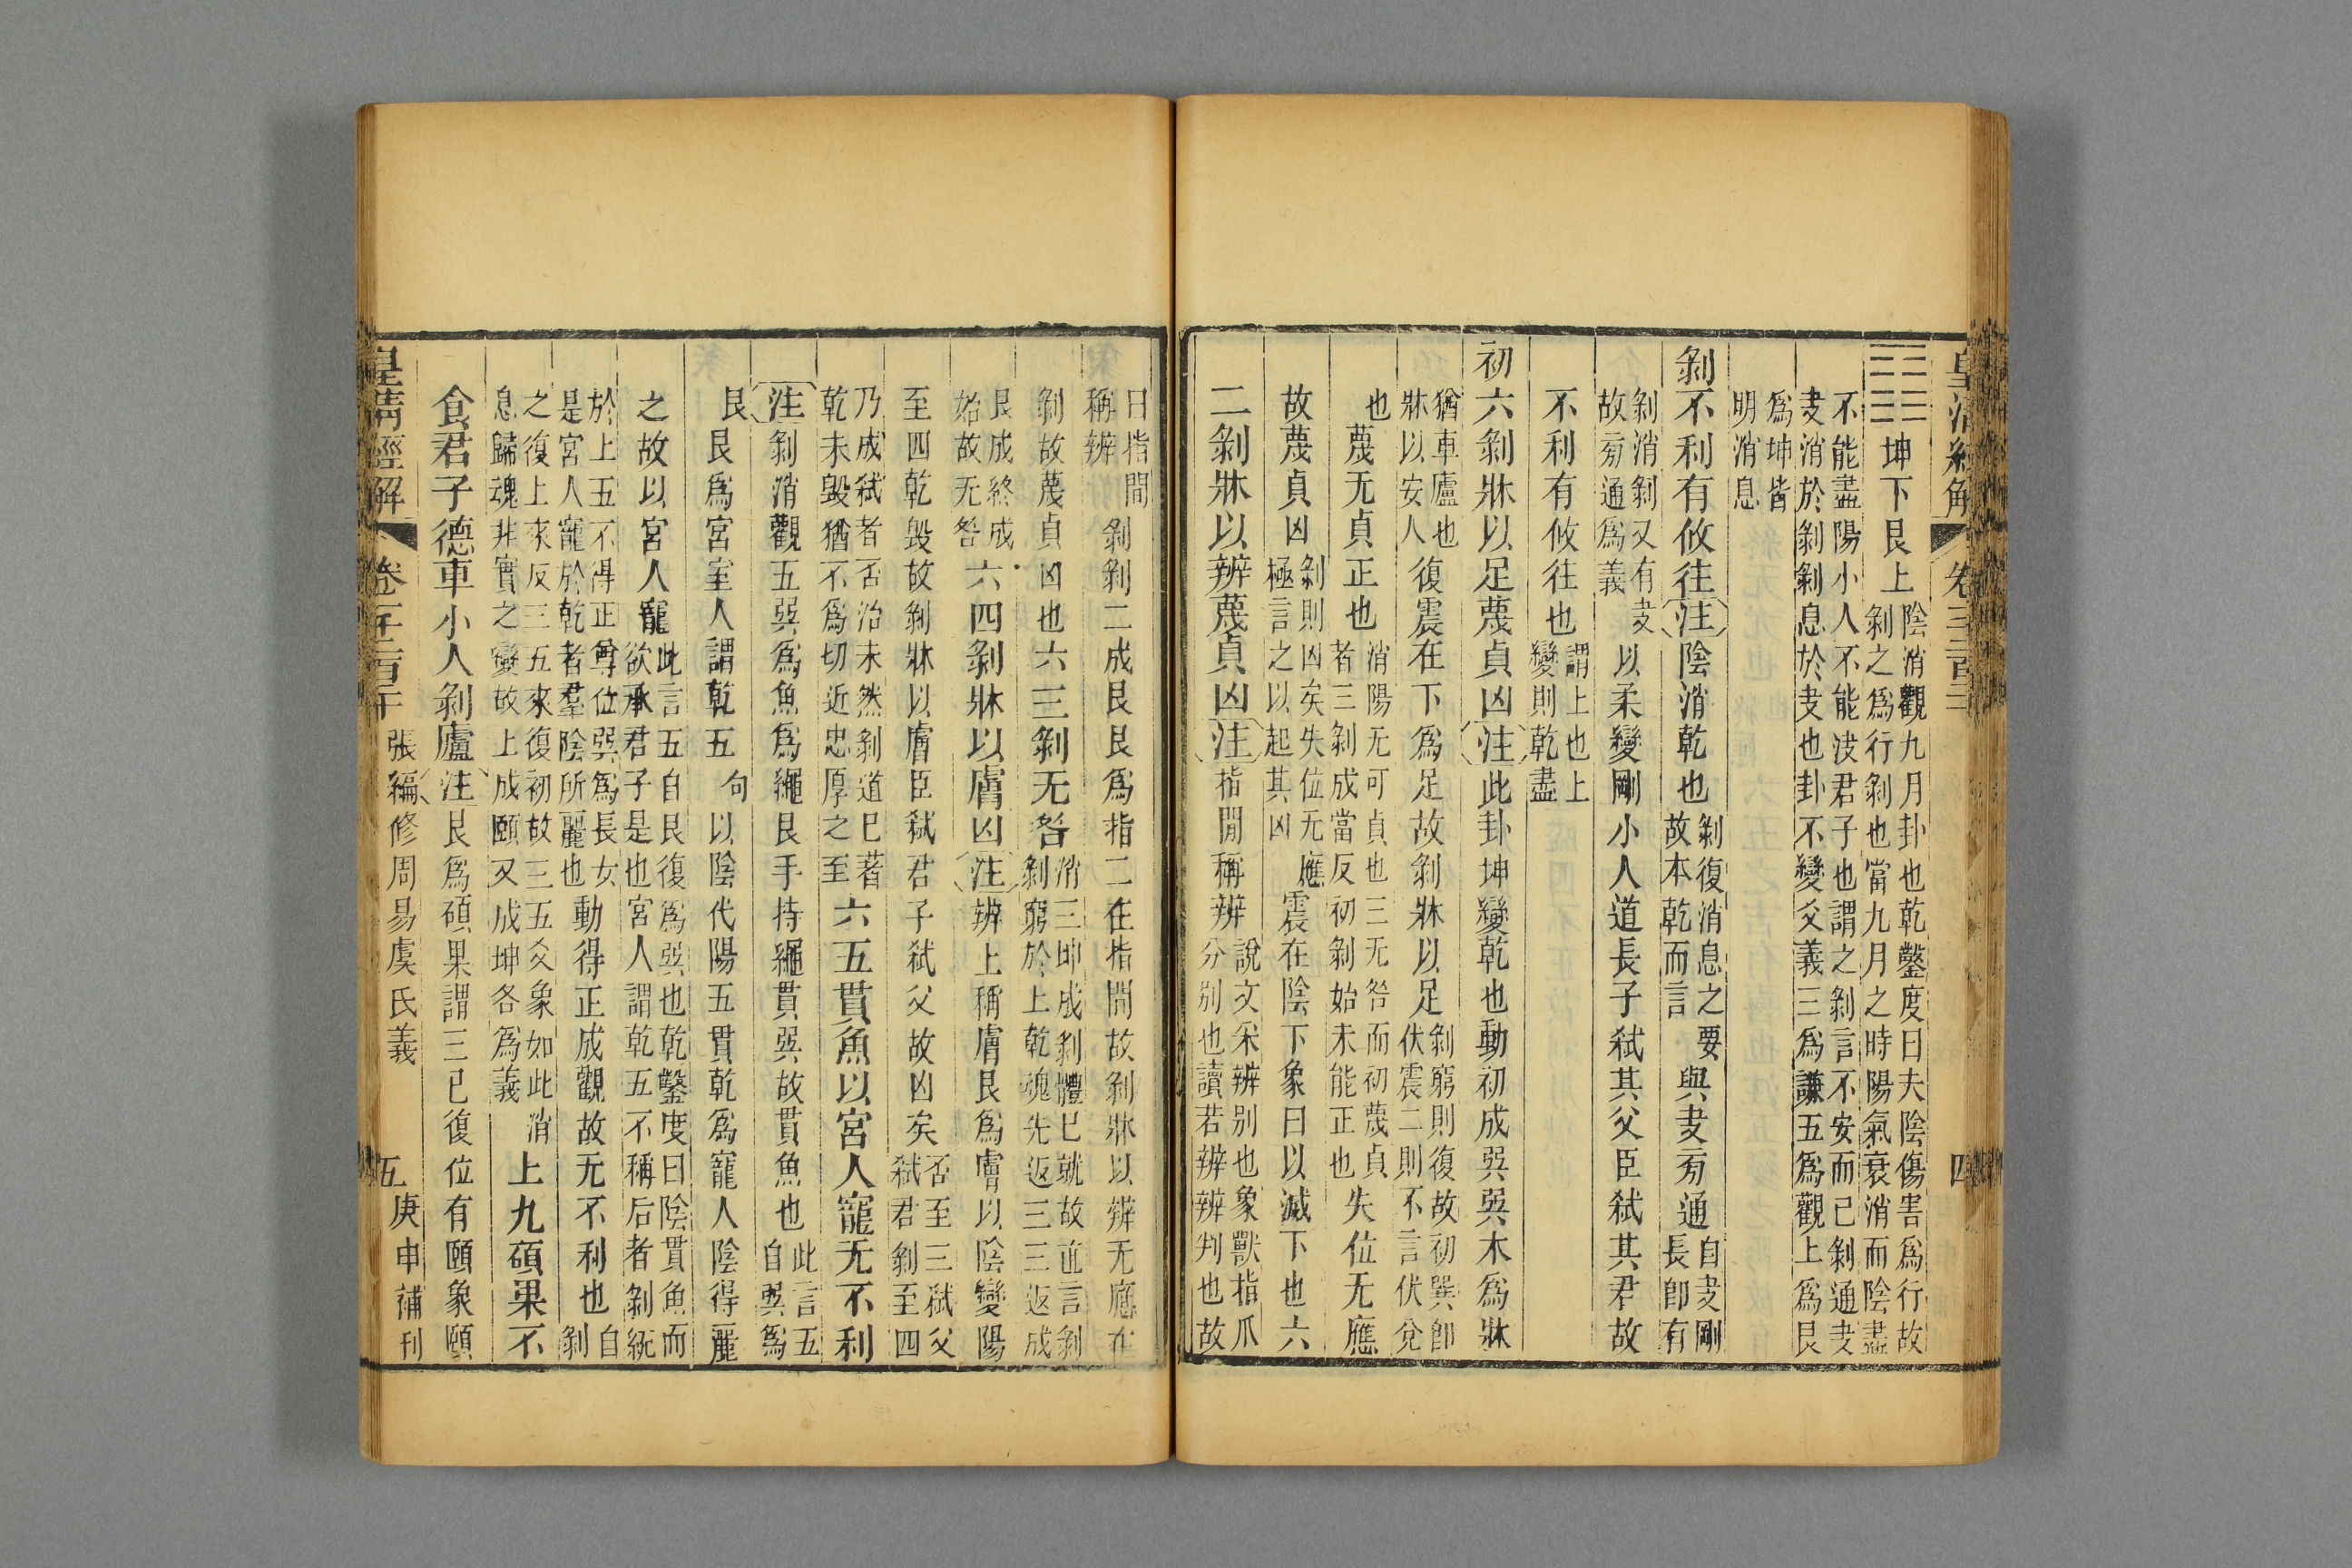 皇清經解 卷三百二 四
坤下艮上 陰消觀九月卦也乾鑿度曰夫陰傷害爲行故
剝之爲行剝也當九月之時陽氣衰消而陰盡
不能盡陽小人不能決君子也謂之剝言不安而已剝通夬
夬消於剝剝息於夬也卦不變爻義三爲謙五爲觀上爲艮
爲坤皆
明消息
剝不利有攸往注陰消乾也剝復消息之要
故本乾而言
與夬旁通自夬剛
長卽有
剝消剝又有夬
故旁通爲義
以柔變剛小人道長子弑其父臣弑其君故
不利有攸往也謂上也上
變則乾盡
初六剝牀以足蔑貞凶注此卦坤變乾也動初成巽巽木爲牀
猶車廬也
牀以安人
復震在下爲足故剝牀以足剝窮則復故初巽卽
伏震二則不言伏兌
也
蔑无貞正也消陽无可貞也三无咎而初蔑貞
者三剝成當反初剝始未能正也
失位无應
故蔑貞凶剝則凶矣失位无應
極言之以起其凶
震在陰下象曰以滅下也六
二剝牀以辨蔑貞凶注指閒稱辨說文釆辨别也象獸指爪
分别也讀若辨辨判也故
曰指閒
稱辨
剝剝二成艮艮爲指二在指閒故剝牀以辨无應在
剝故蔑貞凶也六三剝无咎消三坤成剝體已就故直言剝
剝窮於上乾魂先返三三返成
艮成終成
始故无咎
六四剝牀以膚凶注辨上稱膚艮爲膚以陰變陽
至四乾毀故剝牀以膚臣弑君子弑父故凶矣否至三弑父
弑君剝至四
乃成弑者否治未然剝道已著
乾未毀猶不爲切近忠厚之至
六五貫魚以宮人寵无不利
注剝消觀五巽爲魚爲繩艮手持繩貫巽故貫魚也此言五
自巽爲
艮
艮爲宮室人謂乾五句以陰代陽五貫乾爲寵人陰得麗
之故以宮人寵此言五自艮復爲巽也乾鑿度曰陰貫魚而
欲承君子是也宮人謂乾五不稱后者剝統
於上五不得正尊位巽爲長女
是宮人寵於乾者羣陰所麗也
動得正成觀故无不利也自
剝
之復上來反三五來復初故三五爻象如此
息歸魂非實之變故上成頤又成坤各爲義
消
上九碩果不
食君子德車小人剝廬注艮爲碩果謂三已復位有頤象頤
皇清經解 卷 張編修周易虞氏義 五 庚申補刊